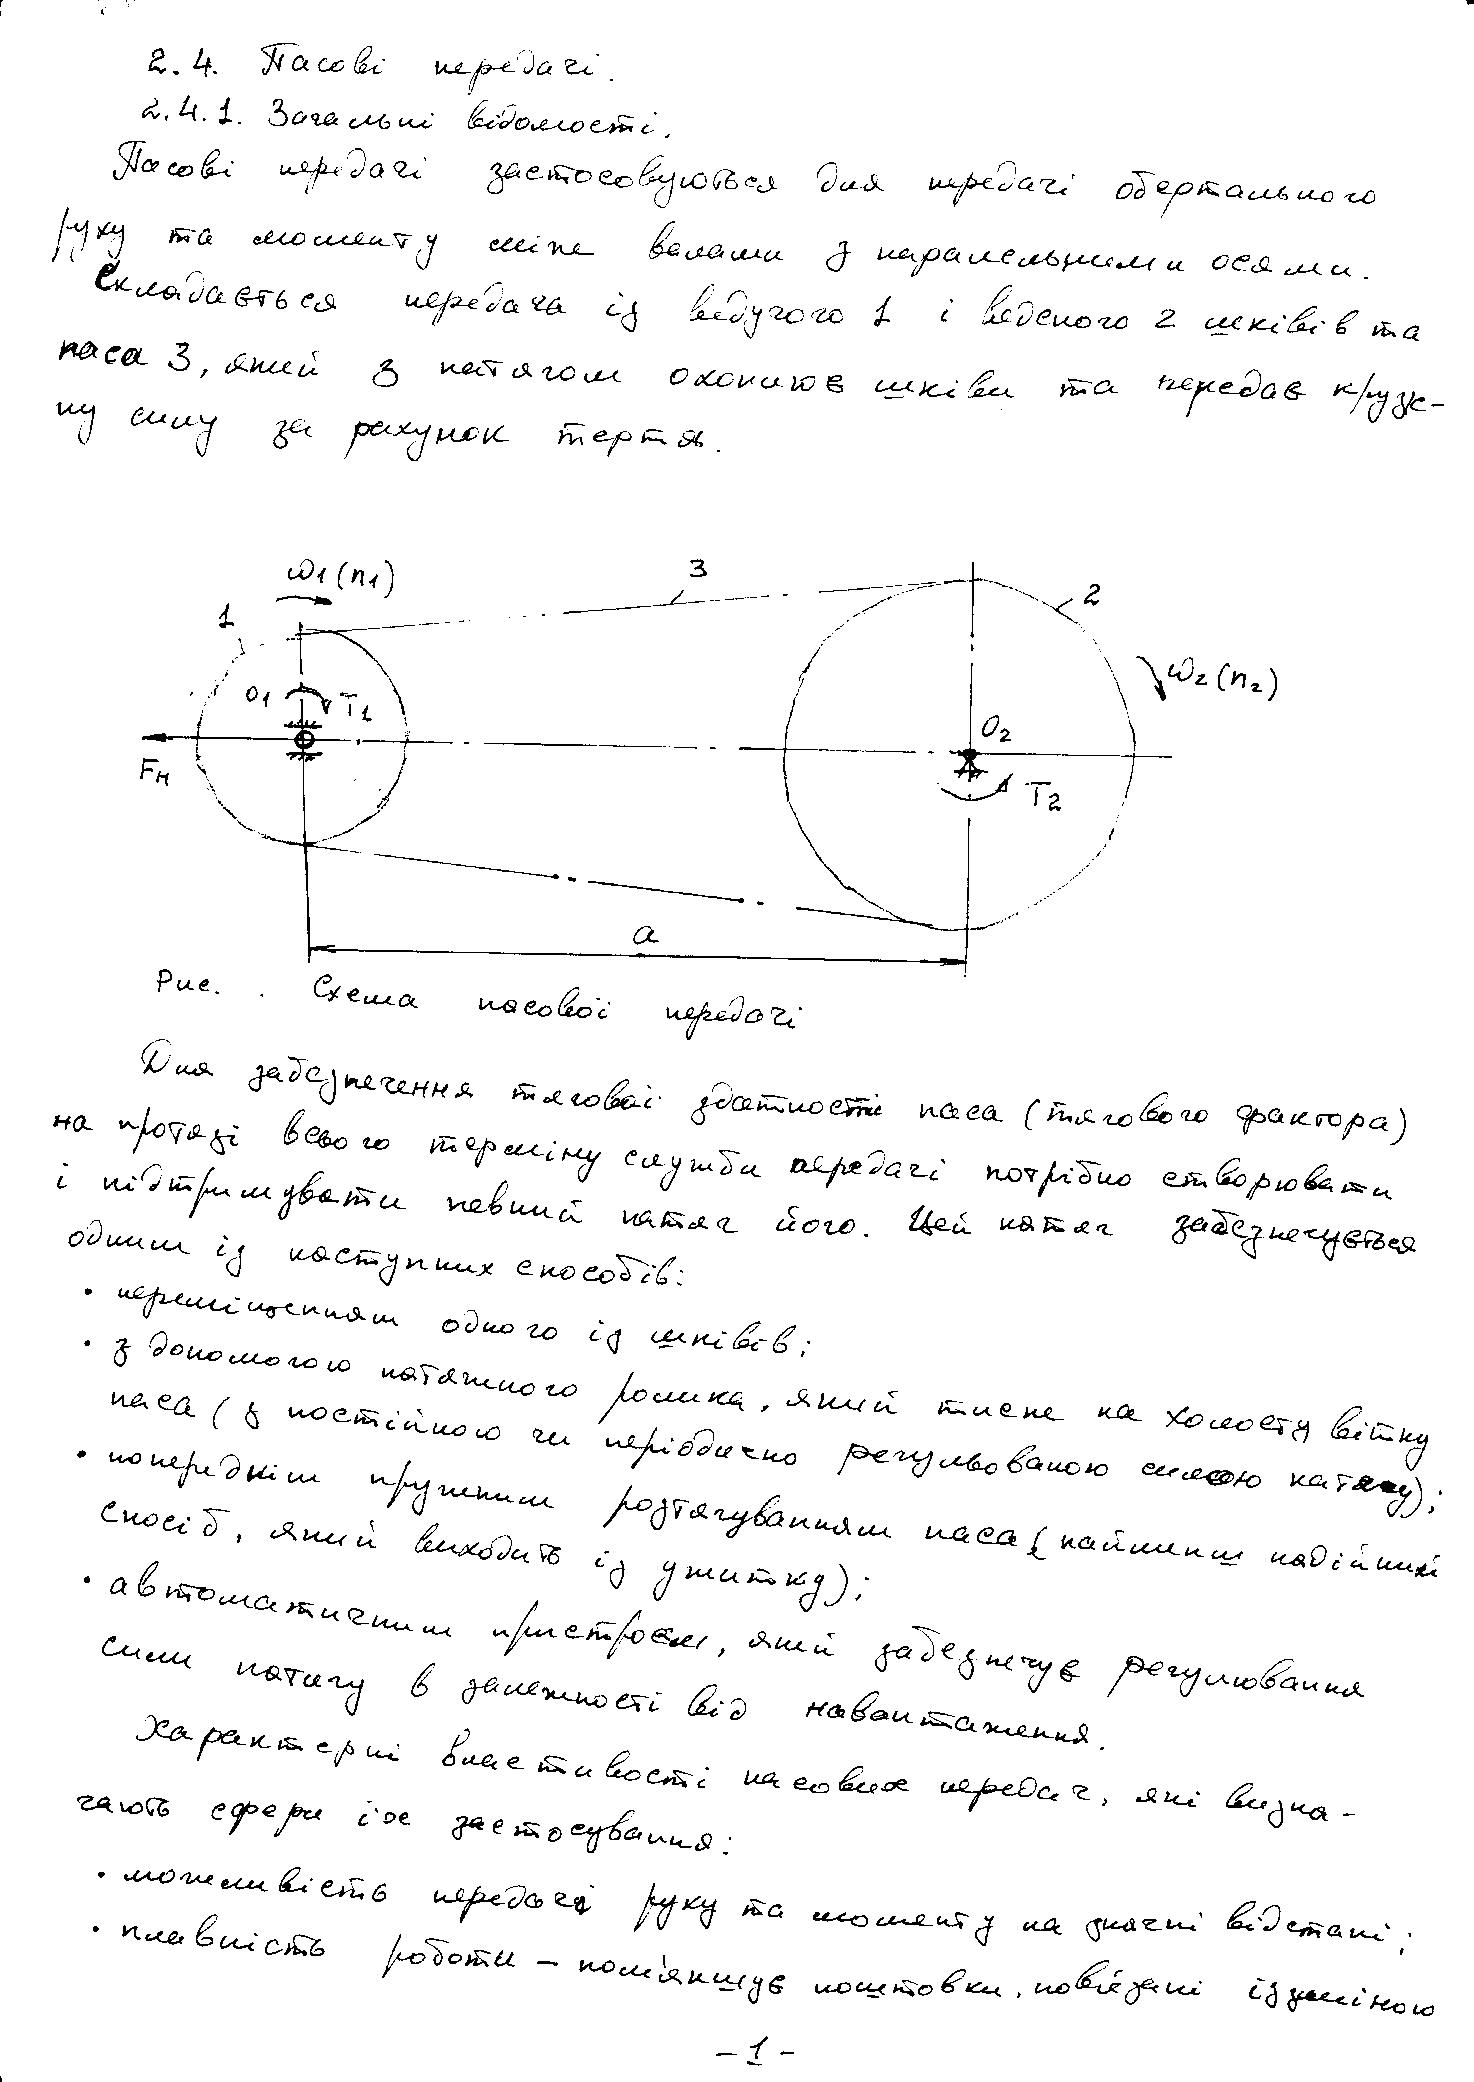 2.4. Пасові передачі.
2.4.1. Загальні відомості.
Пасові передачі застосовуються для передачі обертального
руху та моменту між валами з паралельними осями.
Складається передача із ведучого 1 і веденого 2 шківів та
паса 3, який з натягом охоплює шківи та передає круж-
ну силу за рахунок тертя.
ω1 (n1)
3
1
2
ω2 (n2)
O1
T1
O2
Fн
T2
a
Рис. . Схема пасової передачі
Для забезпечення тягової здатності паса (тягового фактора)
на протязі всього терміну служби передачі потрібно створювати
і підтримувати певний натяг його. Цей натяг забезпечується
одним із наступних способів:
• переміщенням одного із шківів;
• з допомогою натяжного ролика, який тисне на холосту вітку
паса (з постійною чи періодично регульованою силою натягу);
• попереднім пружним розтягуванням паса (найменш надійний
спосіб, який виходить із ужитку);
• автоматичним пристроєм, який забезпечує регулювання
сили натягу в залежності від навантаження.
Характерні властивості пасових передач, які визна-
чають сфери їх застосування:
• можливість передачі руху та моменту на значні відстані;
• плавність роботи – пом'якшує поштовхи, пов'язані із зміною
- 1 -